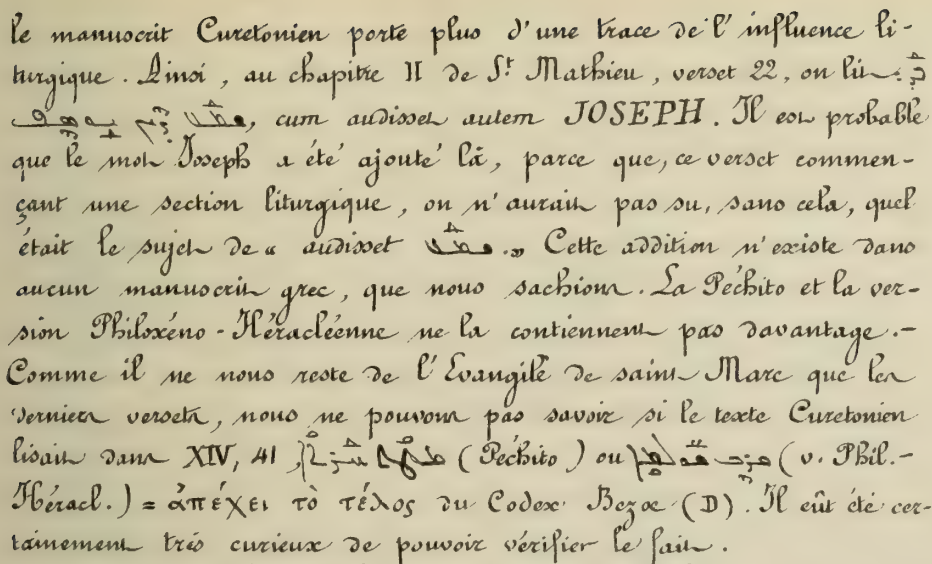 le manuscrit Curetonien porte plus d'une trace de l'influence li-
turgique. Ainsi, au chapitre II de S.t Mathieu, verset 22, on lit
ܫܡܥ ܕܝܢ ܝܘܣܦ, cum audisset autem JOSEPH. Il est probable
que le mot Joseph a été ajouté là, parce que, ce verset commen-
çant une section liturgique, on n'aurait pas su, sans cela, quel
était le sujet de « audisset ܫܡܥ.» Cette addition n'existe dans
aucun manuscrit grec, que nous sachions. La Péchito et la ver-
sion Philoxéno-Héracléenne ne la contiennent pas davantage.-
Comme il ne nous reste de l'Evangile de saint Marc que les
derniers versets, nous ne pouvons pas savoir si le texte Curetonien
lisait dans XIV, 41, (Péchito) ou (v. Phil.-
Héracl.) = ἀπέχει τὸ τέλος du Codex Bezæ (D). Il eût été cer-
tainement très curieux de pouvoir vérifier le fait.